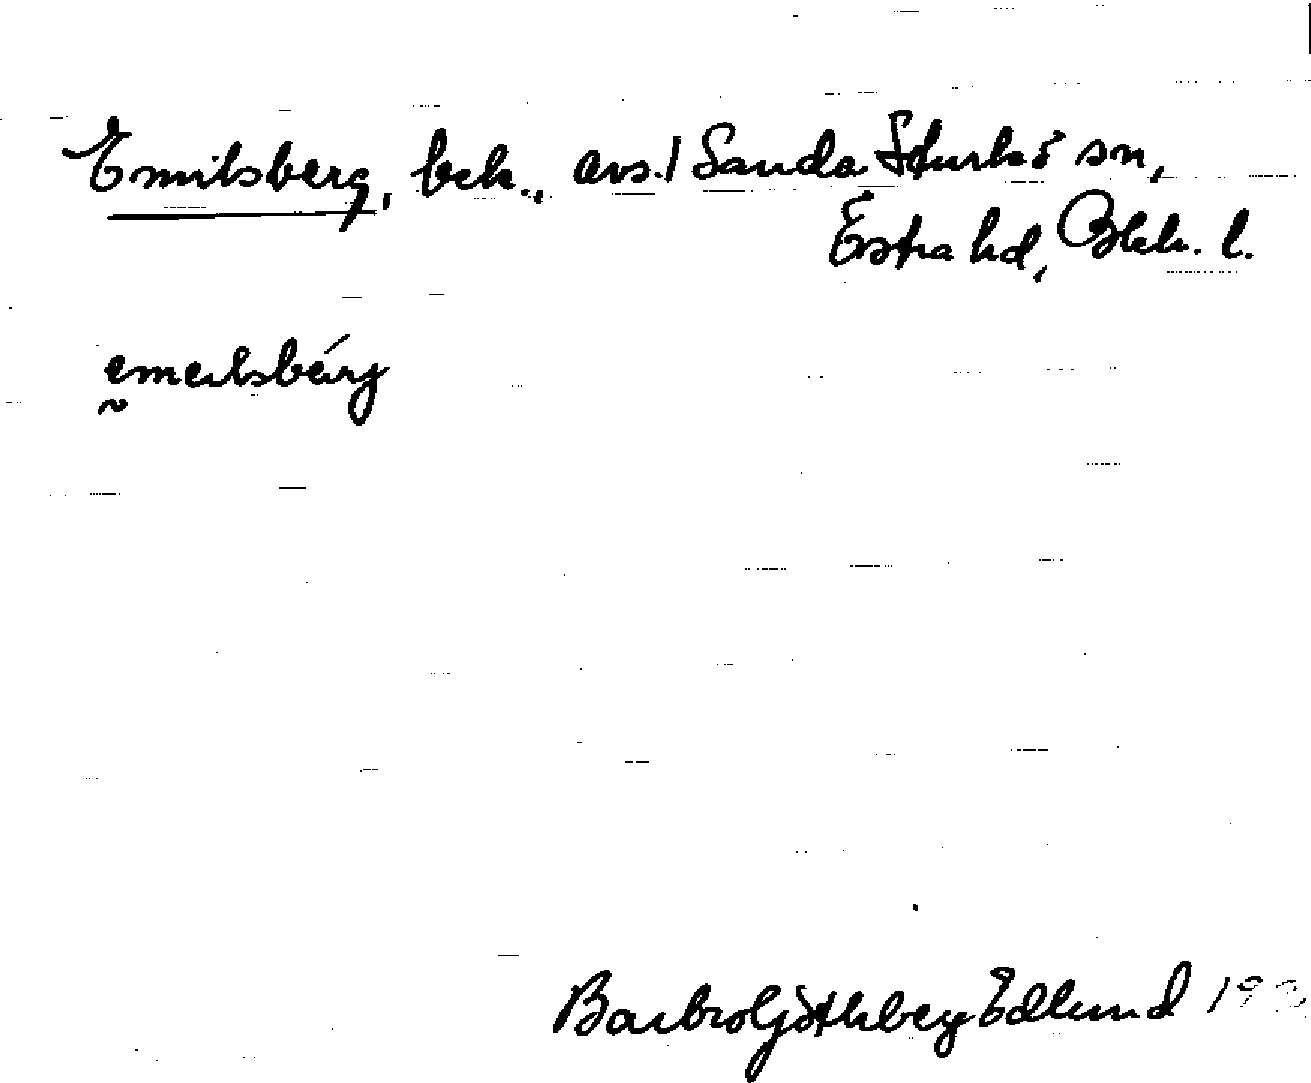 Emilsberg, beb., avs. / Sanda Sturkö sn,
Östra hd, Blek. l.
emeilsbärg
Barbro Göthberg Edlund